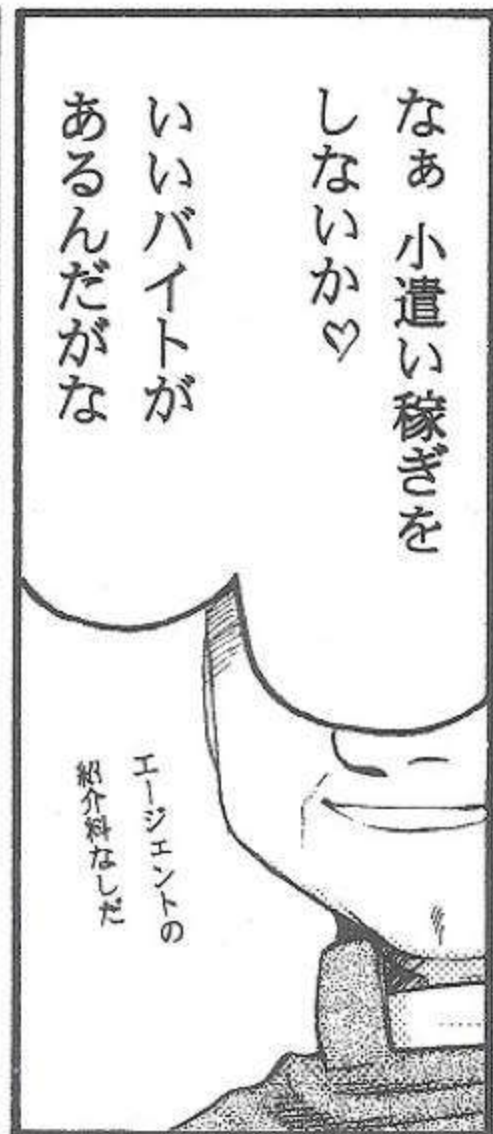 なぁ 小遣い稼ぎを
しないか♡
いいバイトが
あるんだがな
エージェントの
紹介料なしだ